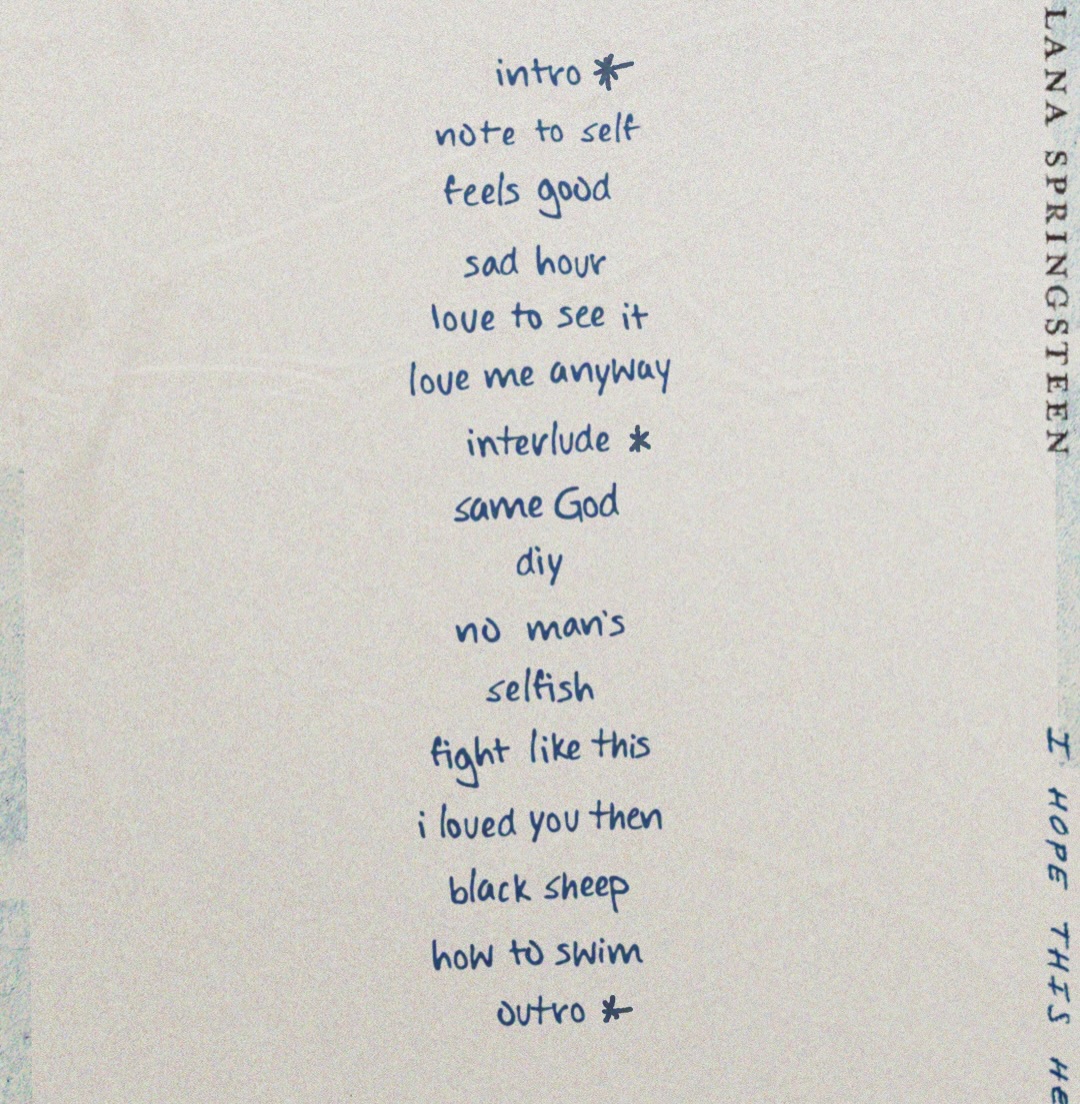 intro *
note to self
feels good
sad hour
love to see it
love me anyway
interlude *
same God
diy
no man's
selfish
fight like this
i loved you then
black sheep
how to swim
outro *
LANA SPRINGSTEEN
I HOPE THIS HE